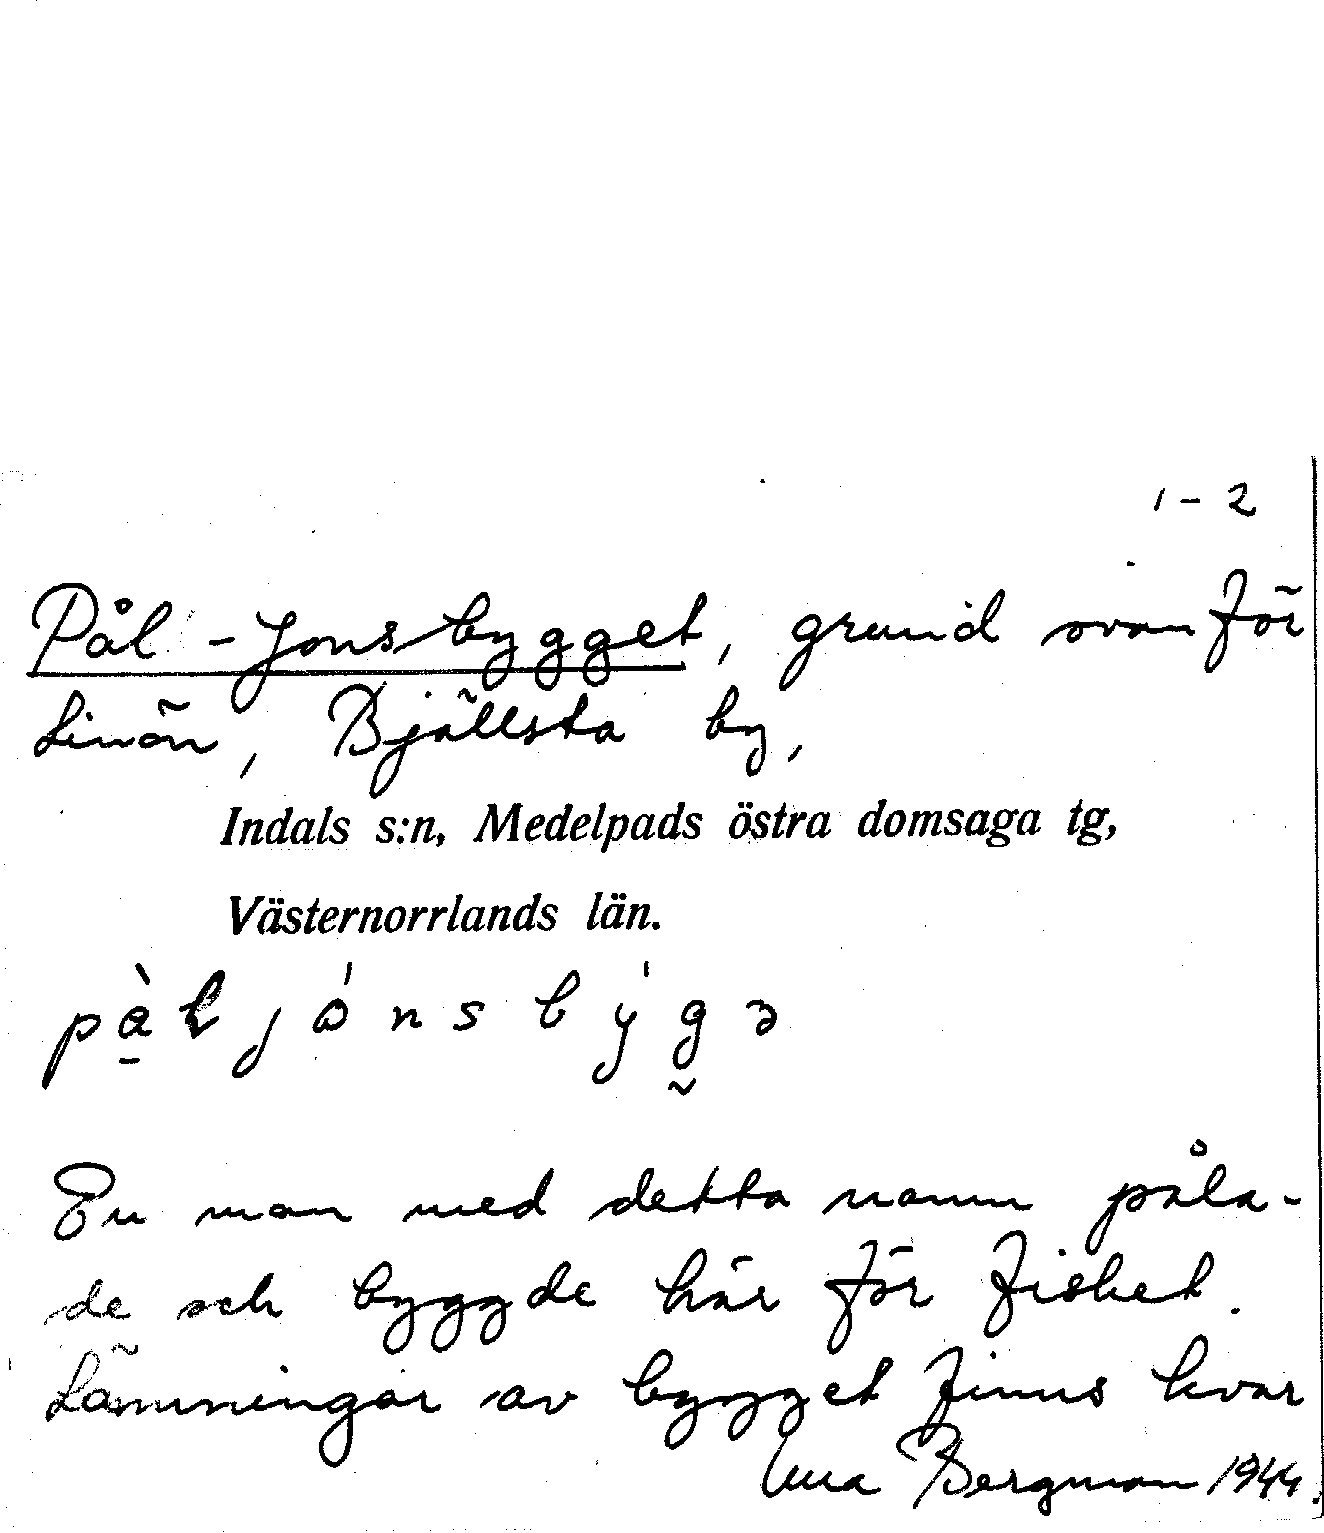 1-2
Pål-Jonsbygget, grund ovanför
Linön, Bjällsta by,
Indals s:n, Medelpads östra domsaga tg,
Västernorrlands län.
En man med detta namn påla-
de och byggde här för fisket.
Lämningar av bygget finns kvar
Bergman 1944.